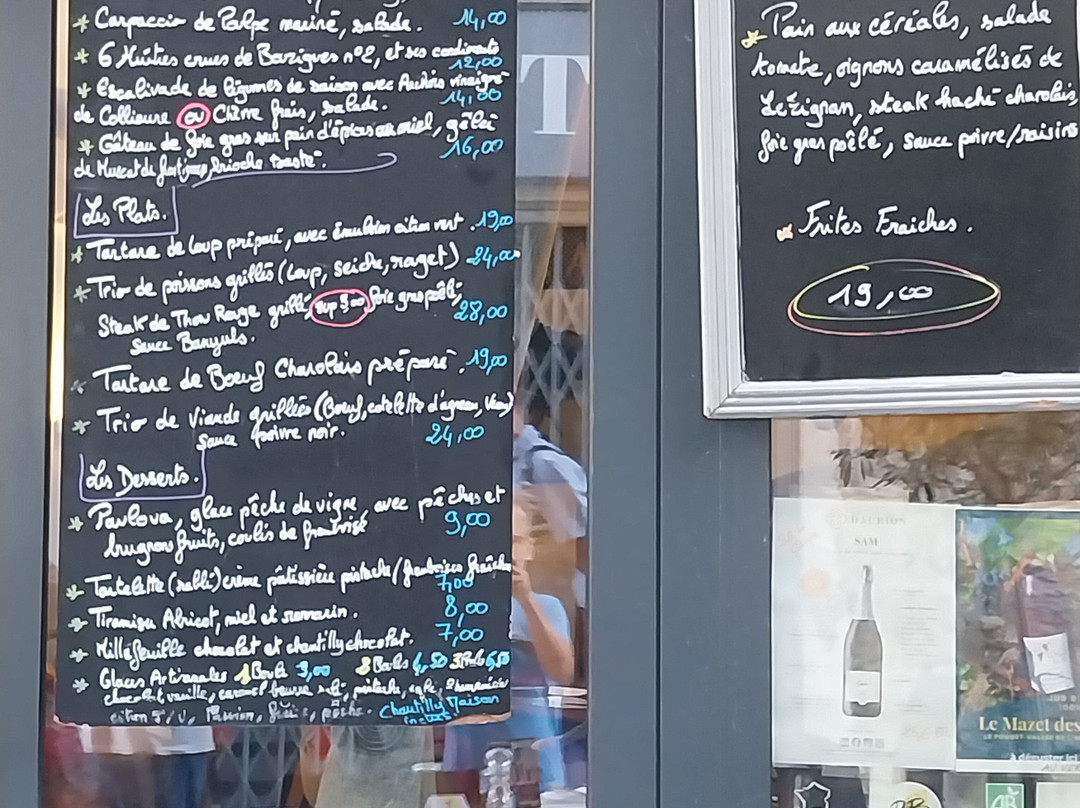 * Carpaccio de Poulpe mariné, salade. 14,00
* 6 Huîtres crues de Bouzigues n°2, et ses condiments 12,00
* Escalivade de légumes de saison avec Anchois vinaigre
de Collioure ou Chèvre frais, salade. 14,00
* Gâteau de foie gras sur pain d'épices au miel, gelée
de Muscat de Frontignan, brioche toasté. 16,00
Les Plats.
* Tartare de loup préparé, avec émulsion citron vert. 19,00
* Trio de poissons grillés (loup, seiche, rouget) 24,00
Steak de Thon Rouge grillé, sup 9,00 foie gras poêlé,
Sauce Banyuls. 28,00
* Tartare de Boeuf Charolais préparé. 19,00
* Trio de Viande grillées (Boeuf, cotelette d'agneau, Veau)
Sauce poivre noir. 24,00
Les Desserts.
* Pavlova, glace pêche de vigne, avec pêches et
brugnons fruits, coulis de framboise 9,00
* Tartelette (sablé) crème pâtissière pistache / framboises fraîches
7,00
* Tiramisu Abricot, miel et romarin. 8,00
* Millefeuille chocolat et chantilly chocolat. 7,00
* Glaces Artisanales 1 Boule 3,00 2 Boules 4,50 3 6,50
chocolat, vanille, caramel beurre salé, pistache, café,
citron Passion, pêche. Chantilly Maison
* Pain aux céréales, salade
tomate, oignons caramélisés de
Lézignan, steak haché charolais,
foie gras poêlé, sauce poivre/raisins
* Frites Fraiches.
19,00
T
SAM
Le Mazet des
à déguster ici
AB